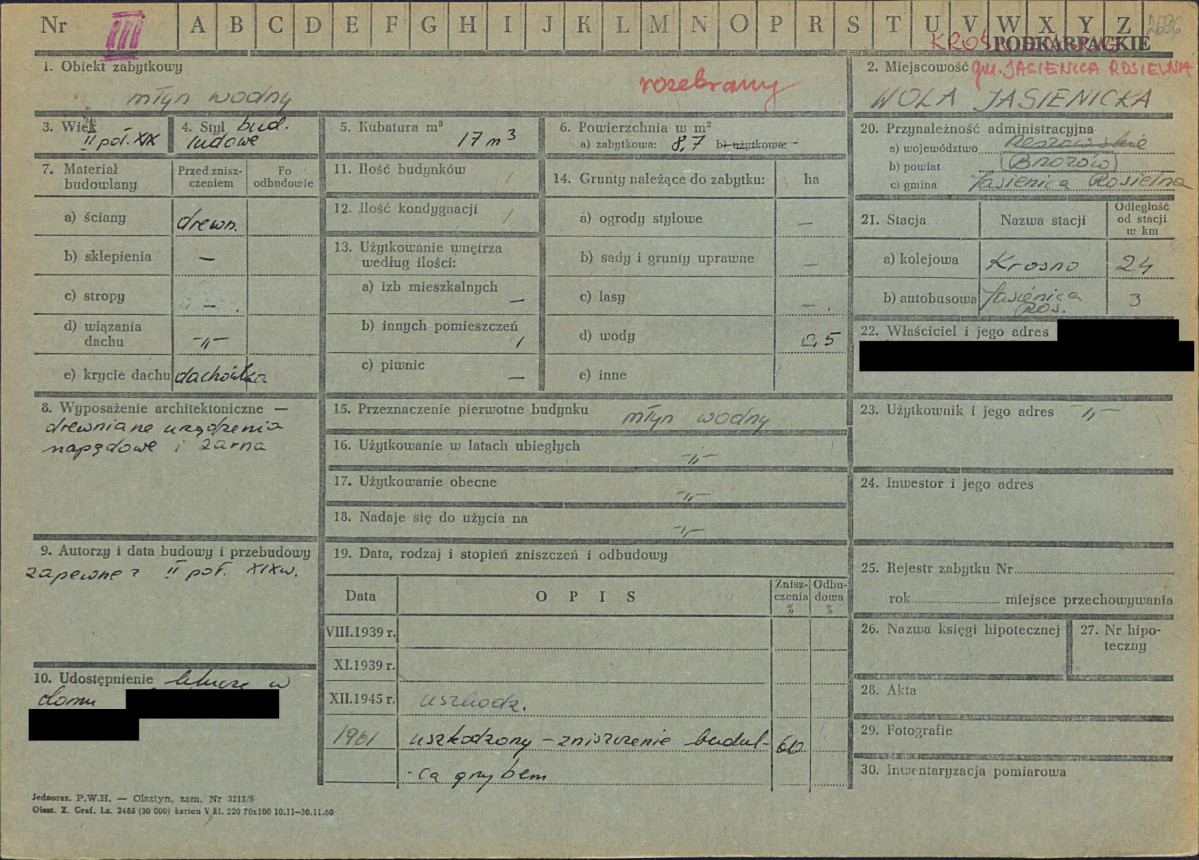 Nr III A B C D E F G H I J K L M N O P R S T U V W X Y Z 2696
KROŚNIEŃSKIE PODKARPACKIE
1. Obiekt zabytkowy
młyn wodny
rozebrany
2. Miejscowość gm. JASIENICA ROSIELNA
WOLA JASIENICKA
3. Wiek
II poł. XIX
4. Styl bud.
ludowe
5. Kubatura m³
17 m³
6. Powierzchnia w m²
a) zabytkowa: 8,7 b) użytkowa: -
7. Materiał budowlany
Przed zniszczeniem
Po odbudowie
a) ściany drewn.
b) sklepienia —
c) stropy —
d) wiązania dachu -"-
e) krycie dachu dachówka
8. Wyposażenie architektoniczne —
drewniane urządzenia
napędowe i żarna
9. Autorzy i data budowy i przebudowy
zapewne z II poł. XIXw.
10. Udostępnienie klucze w
domu
11. Ilość budynków 1
12. Ilość kondygnacji 1
13. Użytkowanie wnętrza
według ilości:
a) izb mieszkalnych —
b) innych pomieszczeń 1
c) piwnic —
14. Grunty należące do zabytku: ha
a) ogrody stylowe —
b) sady i grunty uprawne —
c) lasy —
d) wody 0,5
e) inne
15. Przeznaczenie pierwotne budynku młyn wodny
16. Użytkowanie w latach ubiegłych -"-
17. Użytkowanie obecne -"-
18. Nadaje się do użycia na -"-
19. Data, rodzaj i stopień zniszczeń i odbudowy
Data OPIS Zniszczenia % Odbudowa %
VIII.1939 r.
XI.1939 r.
XII.1945 r. uszkodz.
1961 uszkodzony - zniszczenie budul- 60
-ca grybem
20. Przynależność administracyjna
a) województwo Rzeszowskie
b) powiat (BRZOZÓW)
c) gmina Jasienica Rosielna
21. Stacja Nazwa stacji Odległość od stacji w km
a) kolejowa Krosno 24
b) autobusowa Jasienica Ros. 3
22. Właściciel i jego adres
23. Użytkownik i jego adres -"-
24. Inwestor i jego adres
25. Rejestr zabytku Nr
rok miejsce przechowywania
26. Nazwa księgi hipotecznej
27. Nr hipoteczny
28. Akta
29. Fotografie
30. Inwentaryzacja pomiarowa
Jednoraz. P.W.H. — Olsztyn, zam. Nr 3215/S
Olszt. Z. Graf. Lz. 2488 (30 000) karton V kl. 220 70x100 10.11—30.11.60